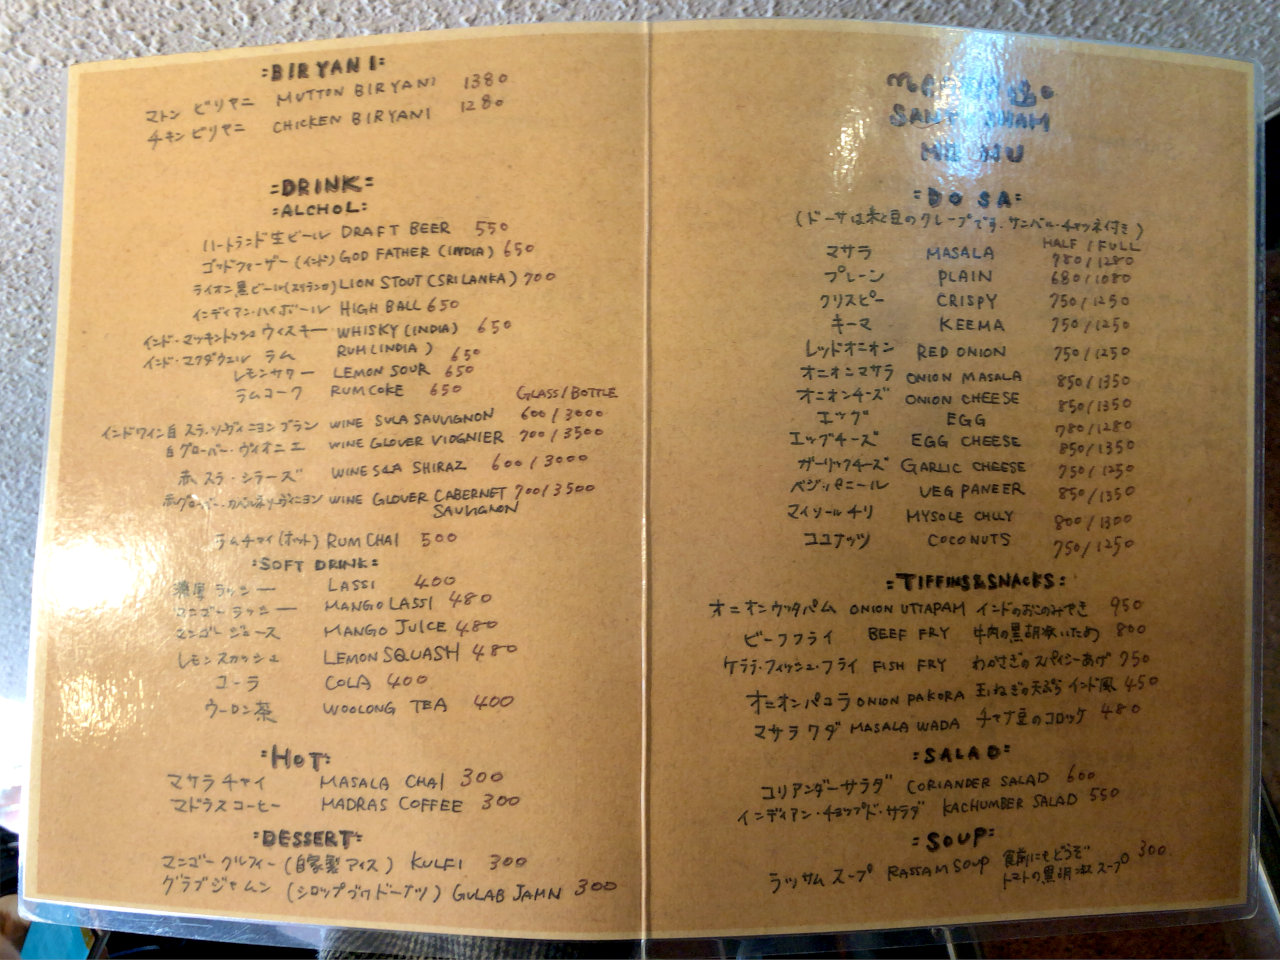 :BIRYANI:
マトン ビリヤニ MUTTON BIRYANI 1380
チキン ビリヤニ CHICKEN BIRYANI 1280
:DRINK:
:ALCHOL:
ハートランド生ビール DRAFT BEER 550
ゴッドファーザー(インド) GOD FATHER (INDIA) 650
ライオン黒ビール(スリランカ) LION STOUT (SRI LANKA) 700
インディアン・ハイボール HIGH BALL 650
インド・マッキントッシュ ウィスキー WHISKY (INDIA) 650
インド・マクダウェル ラム RUM (INDIA) 650
レモンサワー LEMON SOUR 650
ラムコーク RUM COKE 650
GLASS/BOTTLE
インドワイン白 スラ・ソーヴィニヨンブラン WINE SULA SAUVIGNON 600/3000
白 グローバー・ヴィオニエ WINE GLOVER VIOGNIER 700/3500
赤 スラ・シラーズ WINE SLA SHIRAZ 600/3000
赤グローバー・カベルネソーヴィニヨン WINE GLOVER CABERNET SAUVIGNON 700/3500
ラムチャイ(ホット) RUM CHAI 500
:SOFT DRINK:
濃厚 ラッシー LASSI 400
マンゴー ラッシー MANGO LASSI 480
マンゴー ジュース MANGO JUICE 480
レモンスカッシュ LEMON SQUASH 480
コーラ COLA 400
ウーロン茶 WOOLONG TEA 400
:HOT:
マサラ チャイ MASALA CHAI 300
マドラス コーヒー MADRAS COFFEE 300
:DESSERT:
マンゴー クルフィー (自家製アイス) KULFI 300
グラブジャムン (シロップづけドーナツ) GULAB JAMN 300
MENU
:DOSA:
(ドーサは米と豆のクレープです。サンバル・チャツネ付き)
HALF / FULL
マサラ MASALA 780/1280
プレーン PLAIN 680/1080
クリスピー CRISPY 750/1250
キーマ KEEMA 750/1250
レッドオニオン RED ONION 750/1250
オニオンマサラ ONION MASALA 850/1350
オニオンチーズ ONION CHEESE 850/1350
エッグ EGG 780/1280
エッグチーズ EGG CHEESE 850/1350
ガーリックチーズ GARLIC CHEESE 750/1250
ベジ・パニール VEG PANEER 850/1350
マイソールチリ MYSOLE CHLLY 800/1300
ココナッツ COCONUTS 750/1250
:TIFFINS&SNACKS:
オニオンウッタパム ONION UTTAPAM インドのおこのみやき 950
ビーフフライ BEEF FRY 牛肉の黒胡椒いため 800
ケララ・フィッシュ・フライ FISH FRY わかさぎのスパイシーあげ 750
オニオンパコラ ONION PAKORA 玉ねぎの天ぷらインド風 450
マサラ ワダ MASALA WADA チャナ豆のコロッケ 480
:SALAD:
コリアンダーサラダ CORIANDER SALAD 600
インディアン・チョップド・サラダ KACHUMBER SALAD 550
:SOUP:
ラッサム スープ RASSAM SOUP 食前にもどうぞ 300
トマトの黒胡椒スープ